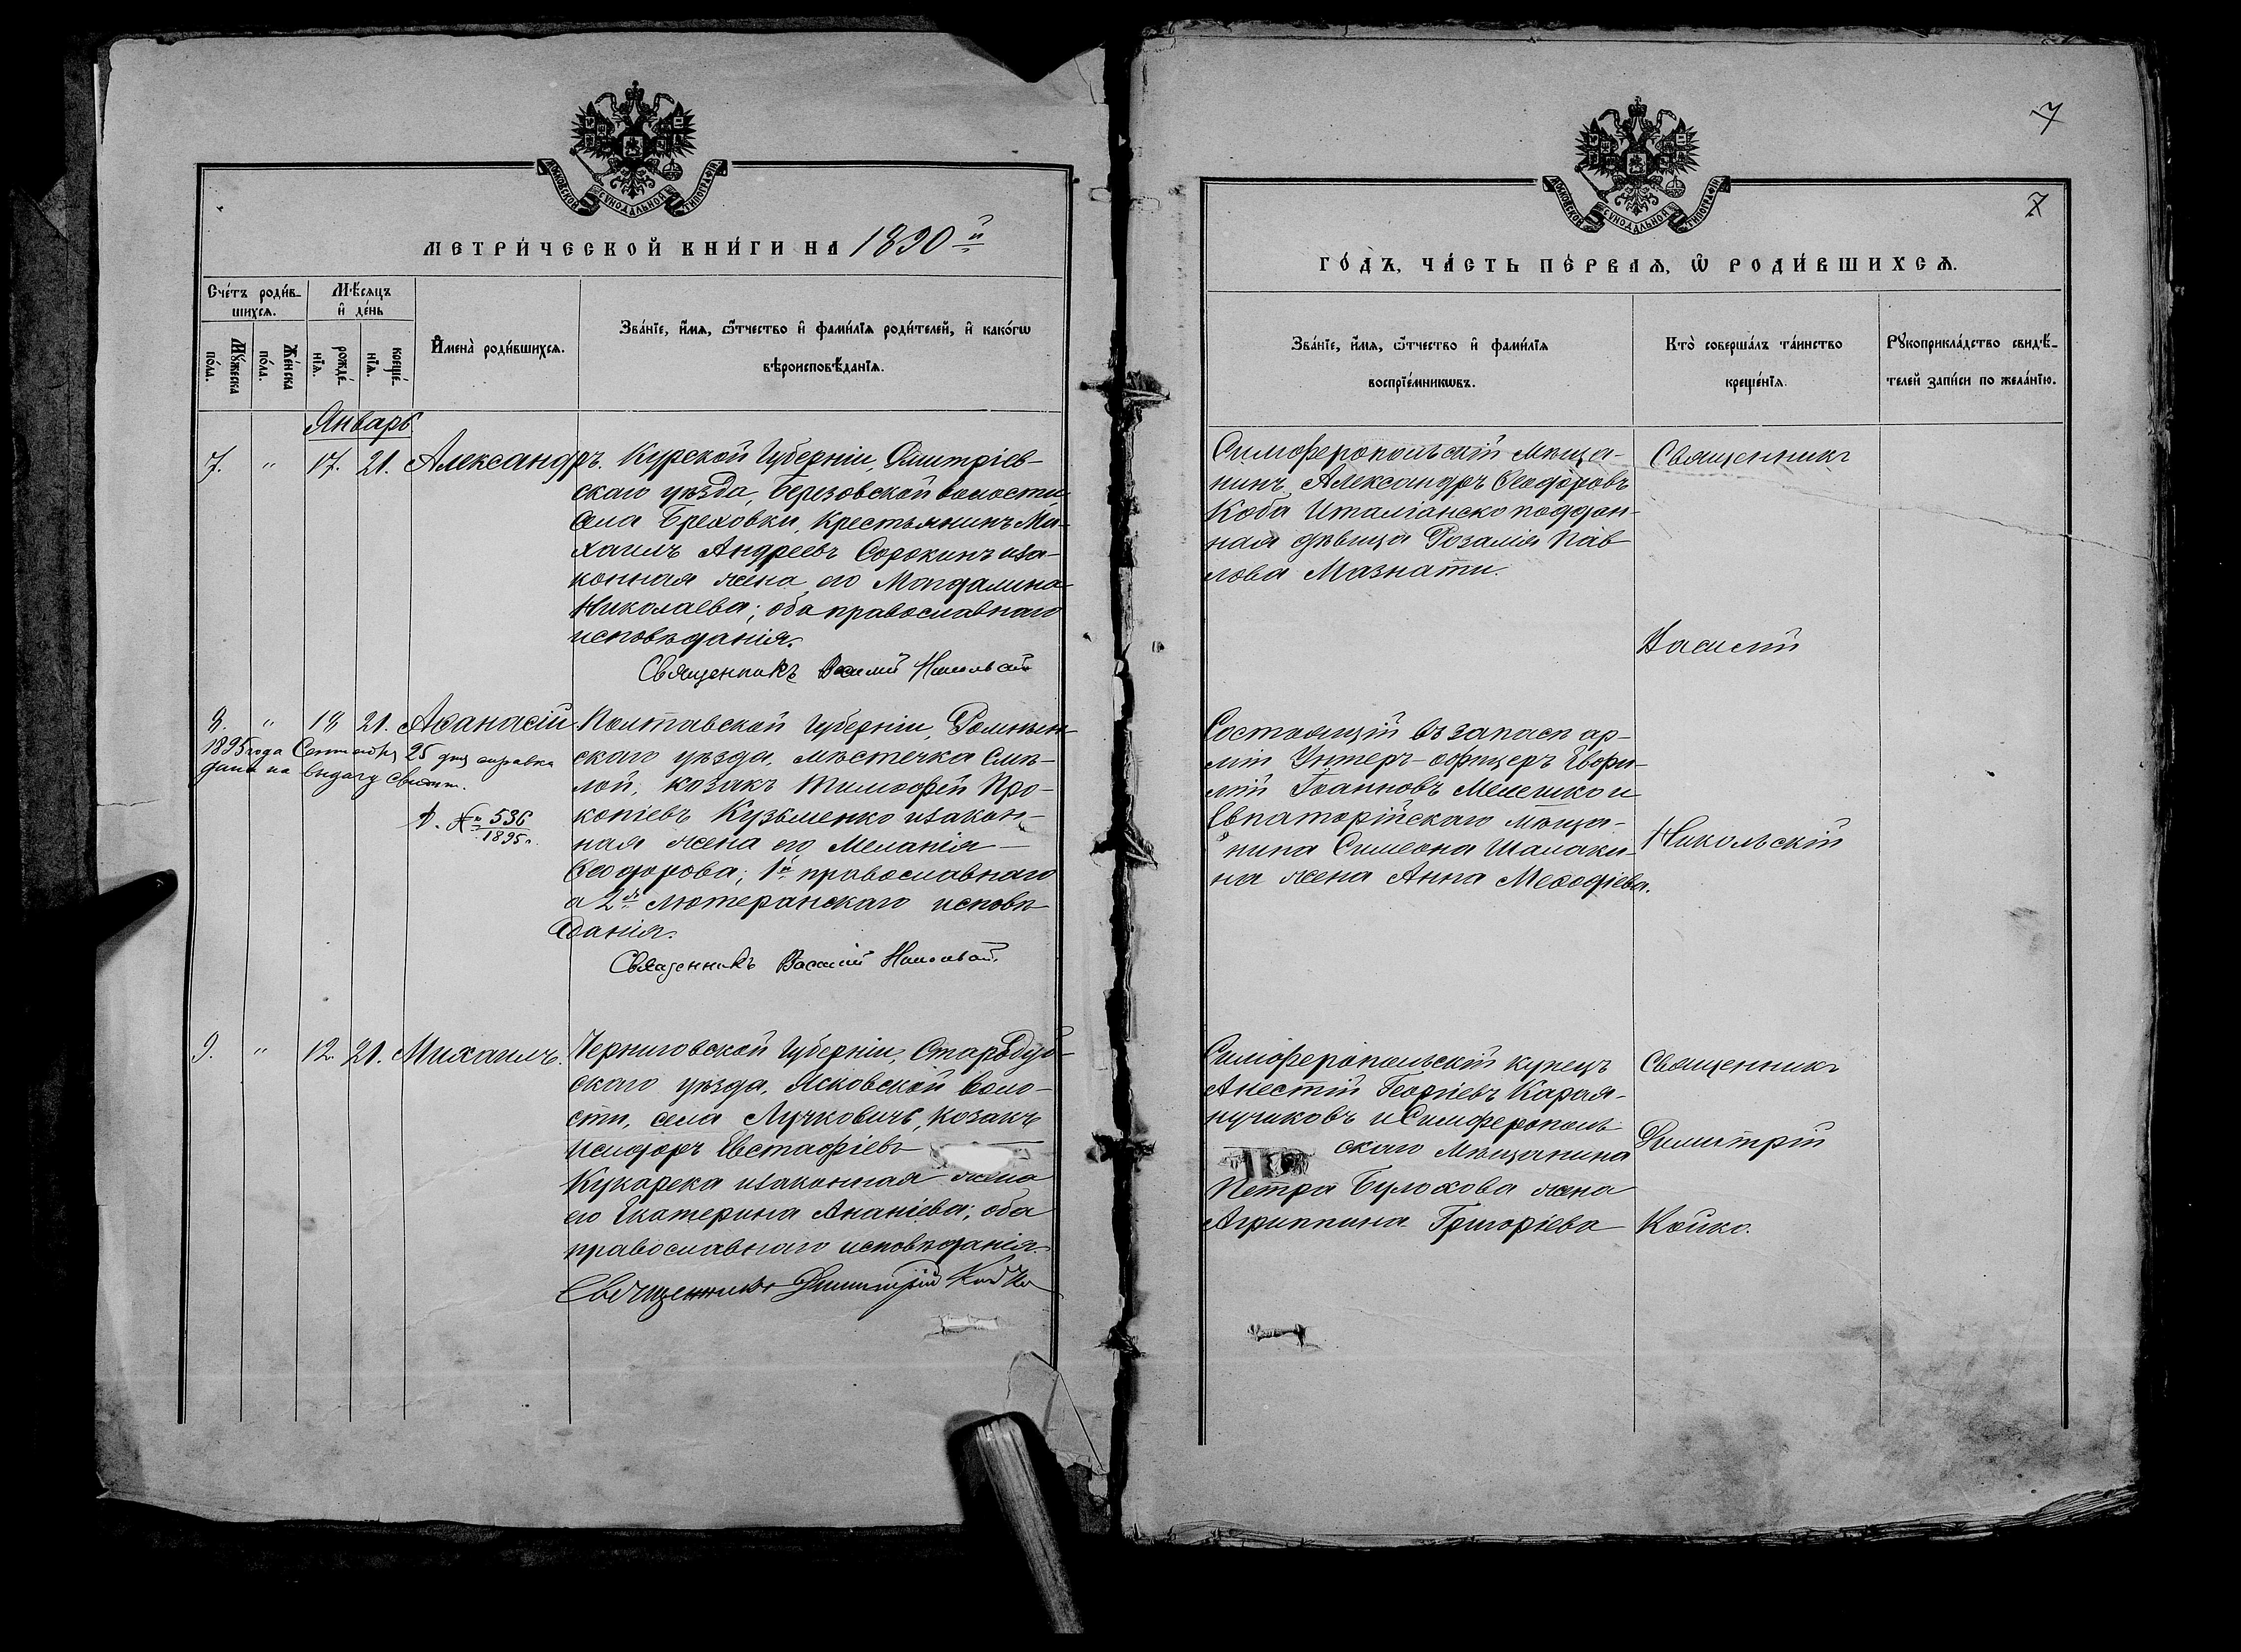 МОСКОВСКОЙ СѴНОДАЛЬНОЙ ТИПОГРАФІИ
МЕТРИ́ЧЕСКОЙ КНИ́ГИ НА 1890й
Сче́тъ роди́в-
шихсѧ.
Мѣ́сѧцъ
и҆ де́нь
Мꙋ́жеска
по́ла.
Же́нска
по́ла.
рожде́-
нїѧ.
креще́-
нїѧ.
И҆мена̀ роди́вшихсѧ.
Зва́нїе, и҆́мѧ, ѻ҆́тчество и҆ фами́лїѧ роди́телей, и҆ како́гѡ
вѣроисповѣ́данїѧ.
Январь
7. " 17. 21. Александръ.
Курской Губерніи, Дмитріев-
скаго уѣзда, Березовской волости
села Бреховки, Крестьянинъ Ми-
хаилъ Андреевъ Сорокинъ иза-
конная жена его Магдалина
Николаева; оба православнаго
исповѣданія.
Священникъ Василій Никольскій
8. " 18 21. Аѳанасій
1895 года Сентября 25 дня справка
дана на выдачу свидѣт.
№ 536
1895 г.
Полтавской Губерніи, Роменен-
скаго уѣзда, мѣстечка Смѣ-
лой, козакъ Тимоѳей Про-
копіевъ Кузьменко изакон-
ная жена его Меланія
Ѳеодорова; 1й православнаго
а 2я лютеранскаго исповѣ-
данія.
Священникъ Василій Никольскій.
9. " 12. 21. Михаилъ.
Черниговской Губерніи, Стародуб-
скаго уѣзда, Ясковской воло-
сти, села Лучковичь, козакъ
Исидоръ Евстафіевъ
Кукарека изаконная жена
его Екатерина Ананіева; оба
православнаго исповѣданія.
Священникъ Димитрій Койко
7
7
МОСКОВСКОЙ СѴНОДАЛЬНОЙ ТИПОГРАФІИ
ГО́ДЪ, ЧА́СТЬ ПЕ́РВАѦ, Ѡ҆ РОДИ́ВШИХСѦ.
Зва́нїе, и҆́мѧ, ѻ҆́тчество и҆ фами́лїѧ
воспрїе́мникѡвъ.
Кто̀ соверша́лъ та́инство
креще́нїѧ.
Рꙋкоприкла́дство свидѣ́-
телей за́писи по жела́нїю.
Симферопольскій Мѣща-
нинъ Александръ Ѳеодоровъ
Коба Италіанско поддан-
ная дѣвица Розалія Пав
лова Мазнати.
Священникъ
Василій
Никольскій
Состоящій въ запасѣ ар-
міи Унтеръ-офицеръ Евфи-
мій Іоанновъ Мелешко и
Евпаторійскаго мѣща-
нина Симеона Шалаки-
на жена Анна Меѳодіева.
Симферопольскій купецъ
Анестій Георгіевъ Карая-
нучиковъ и Симферополь
скаго Мѣщанина
Петра Булохова жена
Агриппина Григоріева
Священникъ
Димитрій
Койко.